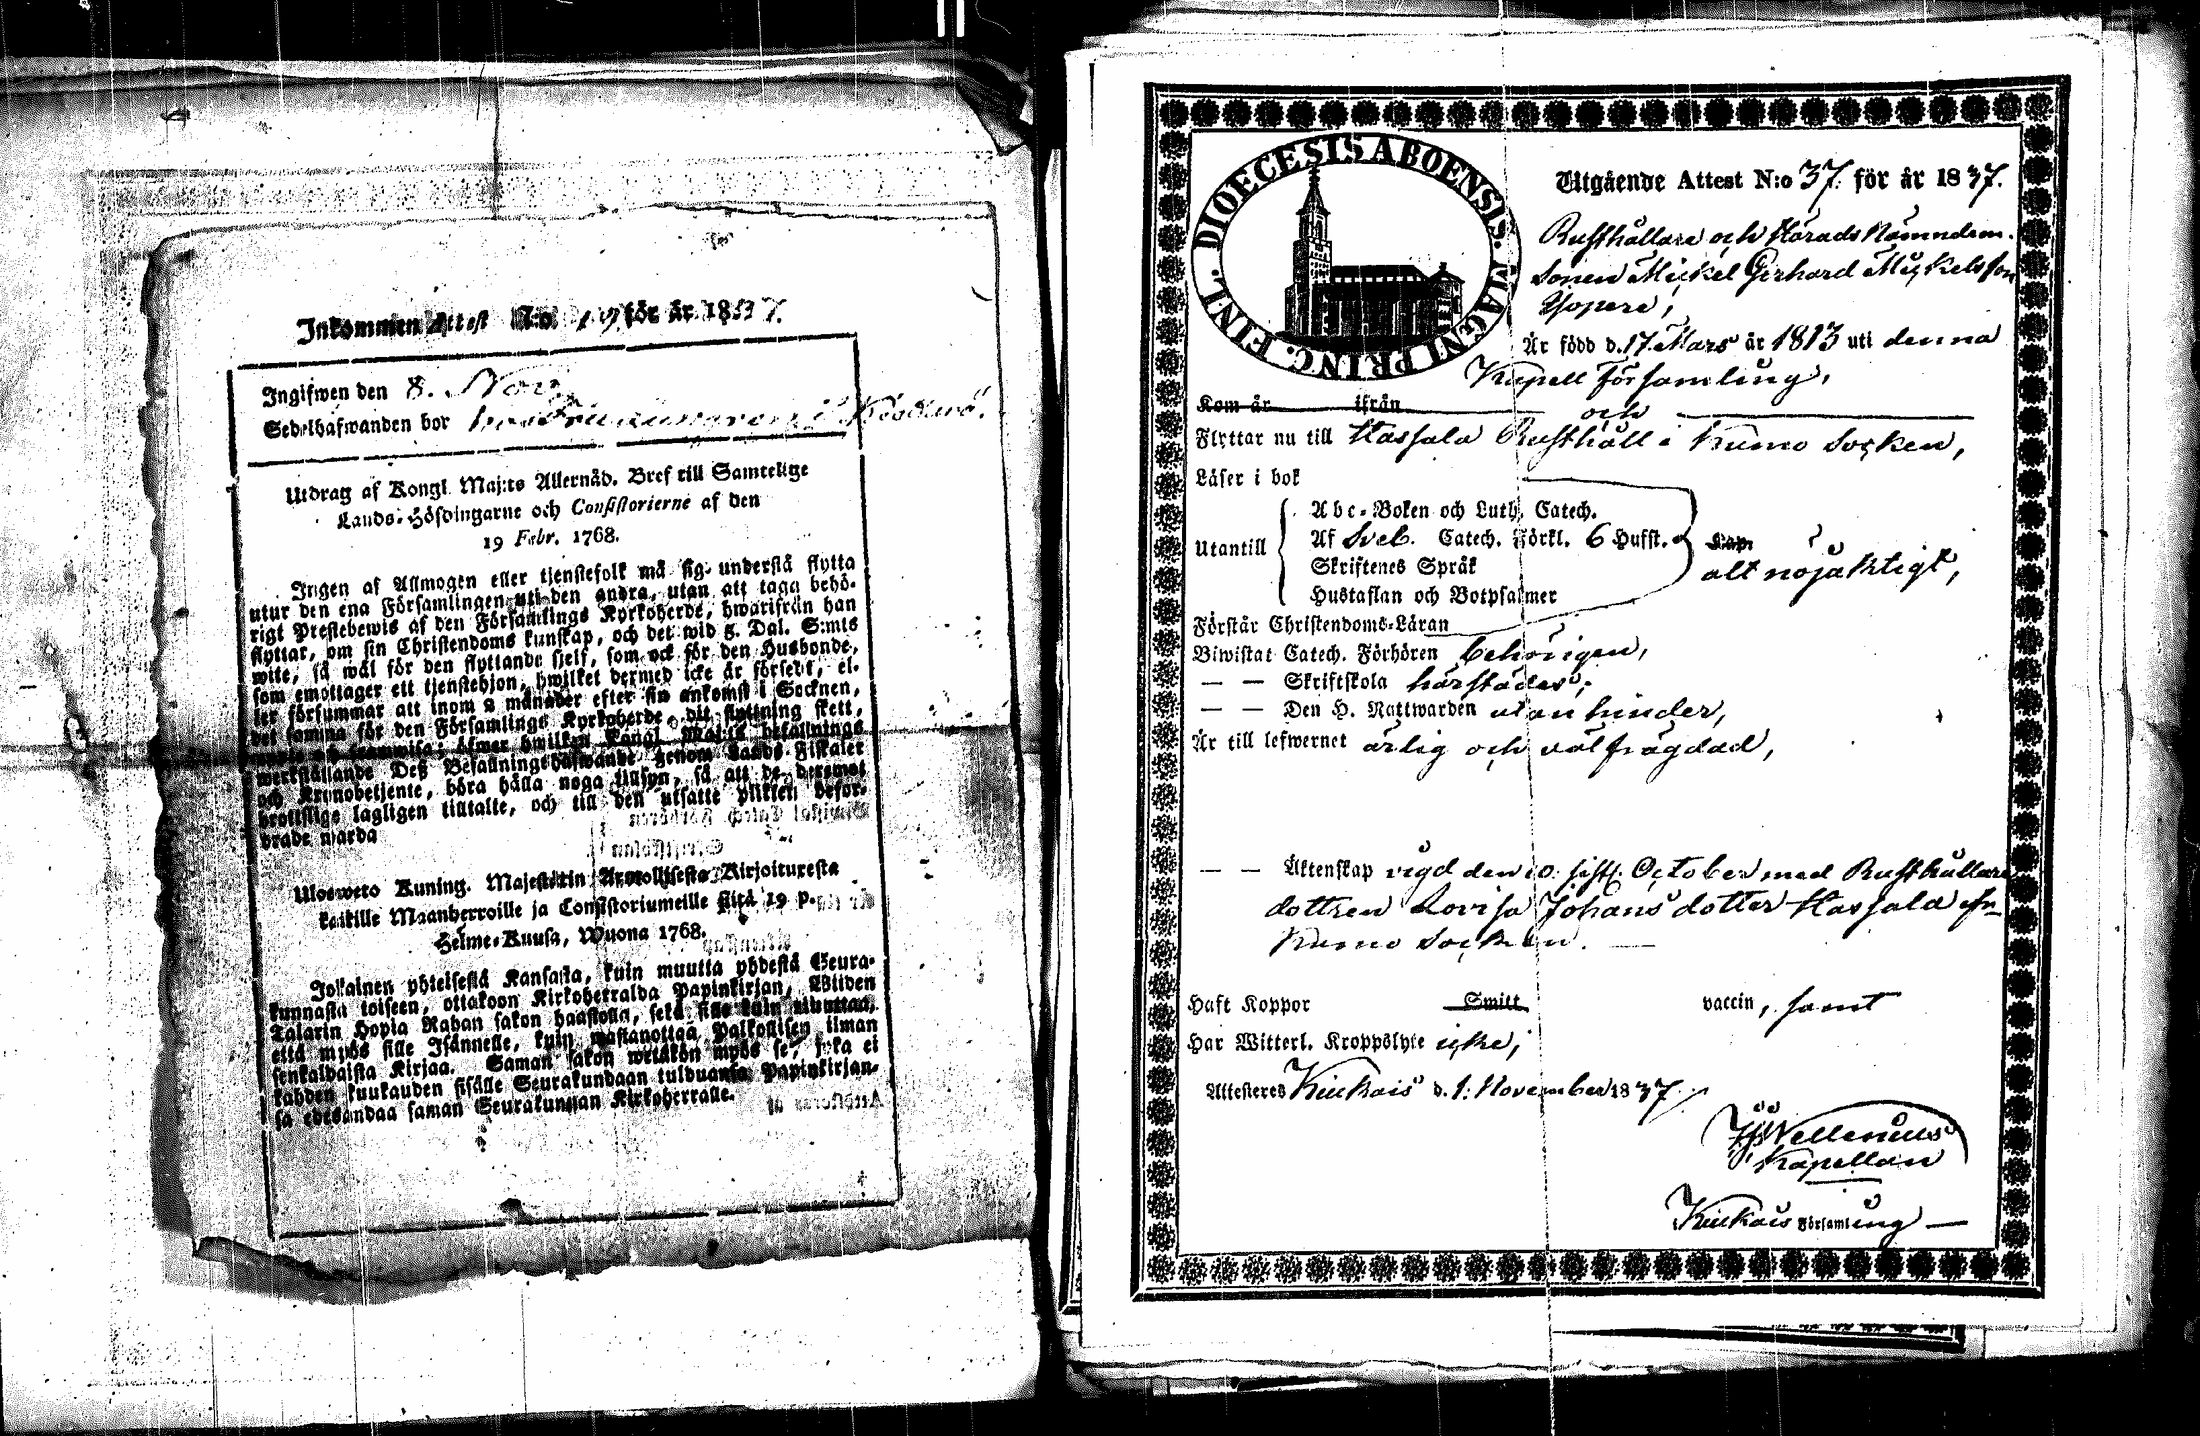 Inkommen Attest N:o för år 1837.
Ingifwen den 8. Nov.
Sedelhafwanden bor
Utdrag af Kongl. Maj:ts Allernåd. Bref till Samtelige
Lands-Höfdingarne och Consistorierne af den
19 Febr. 1768.
Ingen af Allmogen eller tjenstefolk må sig understå flytta
utur den ena Församlingen uti den andra, utan att taga behö-
rigt Prestebewis af den Församlings Kyrkoherde, hwarifrån han
flyttar, om sin Christendoms kunskap, och det wid 5. Dal. S:mts
wite, så wäl för den flyttande sjelf, som ock för den Husbonde,
som emottager ett tjenstehjon, hwilket dermed icke är försedt, el-
ler försummar att inom 2 månader efter sin ankomst i Socknen,
det samma för den Församlings Kyrkoherde, dit flyttning skett,
framwisa; öfwer hwilken Kongl. Maj:ts befallnings
werkställande Deß Befallningshafwande genom Lands-Fiskaler
och Kronobetjente, böra hålla noga tillsyn, så att de deremot
brottslige lagligen tilltalte, och till den utsatte plikten befor-
drade warda
Ulosweto Kuning. Majestetin Armollisesta Kirjoituresta
kaikille Maanherroille ja Consistoriumeille siitä 19 p.
Helme-Kuusa, Wuona 1768.
Jokainen yhteisestä Kansasta, kuin muutta yhdestä Seura-
kunnasta toiseen, ottakoon Kirkoherralda Papinkirjan, Wiiden
Talarin Hopia Rahan sakon haastolla, sekä sille kuin muuttaa,
että myös sille Isännelle, kuin wastanottaa Palkollisen ilman
senkaldaista Kirjaa. Saman sakon wetäkön myös se, joka ei
kahden kuukauden sisälle Seurakundaan tulduansa Papinkirjan-
sa edesandaa saman Seurakunnan Kirkoherralle.
DIOECESIS ABOENSIS. MAGNI PRINC. FINL.
Utgående Attest N:o 37. för år 1837.
Rusthållare och Härads Nämndem.
Sonen Mickel Gerhard Mickelsson
Yopere,
Är född d. 17 Mars år 1813 uti denna
Kapell Församling,
Kom år ifrån och
Flyttar nu till Hassala Rusthåll i Kumo Socken,
Läser i bok
Abc-Boken och Luth. Catech.
Utantill Af Sveb. Catech. Förkl. 6 Hufst. Kap.
Skriftenes Språk alt nöjaktigt,
Hustaflan och Botpsalmer
Förstår Christendoms-Läran
Biwistat Catech. Förhören behörigen,
— — Skriftskola härstädes;
— — Den H. Nattwarden utan hinder,
Är till lefwernet ärlig och välfrägdad,
— — Äktenskap vigd den 10. sistl. October med Rusthållare
dottren Lovisa Johans dotter Hassala ifr.
Kumo Socken. —
Haft Koppor Smitt vaccin, samt
Har Witterl. Kroppslyte icke;
Attesteres Kiukais d. 1. November 1837.
Wellenius
Kapellan
Kiukais Församling —